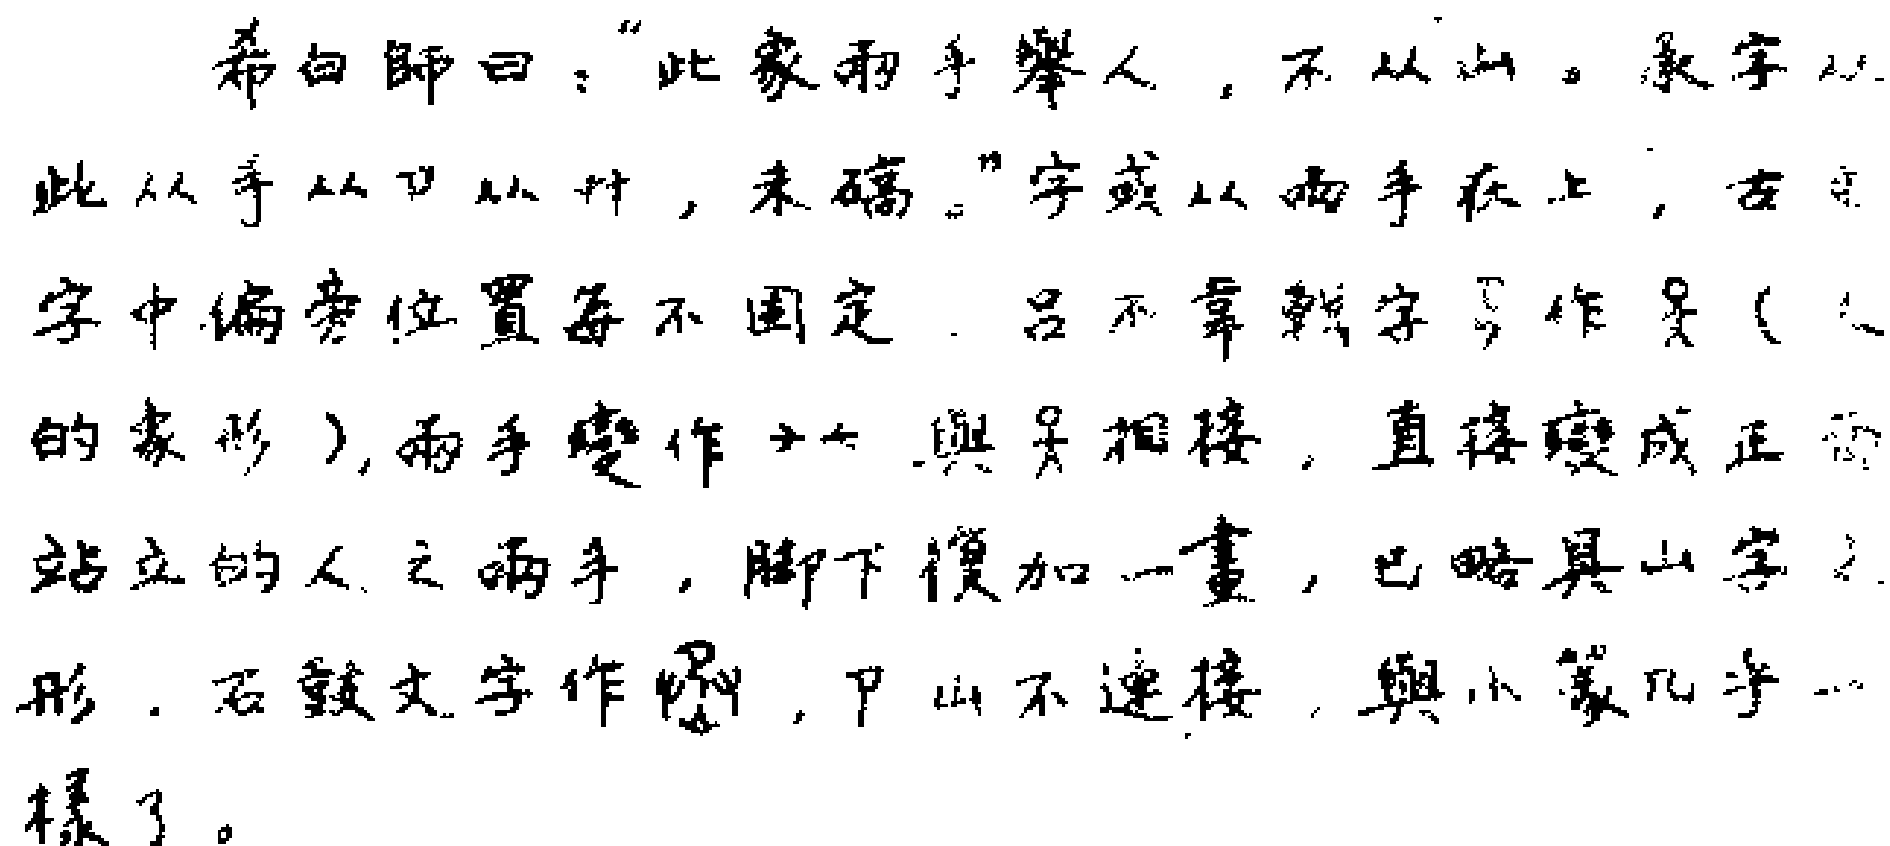 希白師曰：“此象兩手舉人，不从山。承字从
此从手从卩从廾，未確。”字或从兩手在上，古文
字中偏旁位置每不固定．呂不韋戟字作（人
的象形），兩手變作與相接，直接變成正面
站立的人之兩手，脚下復加一畫，已略具山字之
形．石鼓文字作，卩山不連接，與小篆几乎一
樣了。